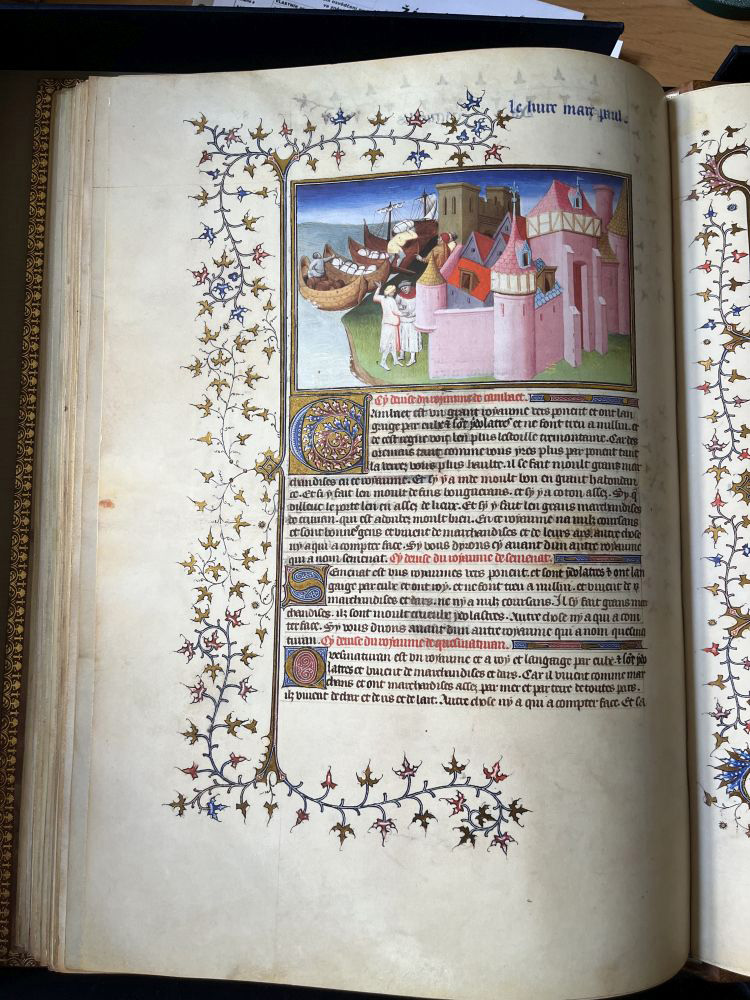 le liure marc paul.
Cy deuise du royaume de cambaet.
Cambaet est vn grant royaume vers ponent et ont lan
gaige par eulx & sõt ydolatres et ne font treu a nullui. et
de cest regne voit len plus lestoille tremontaine. Car des
orenauant comme vous yrez plus par ponent tant
la verrez vous plus haulte. il se fait moult grans mar
chandises en ce royaume. Et sy y a inde moult bon en grant habondan
ce. Et si y fait len moult de fins bouguerans. et sy y a coton assez. Sy q̃
dilleuc le porte len en assez de lieux. Et sy y fait len grans marchandises
de cuiran. qui est adoubez moult bien. En ce royaume na nulz coursans
et sont bonnes gens et viuent de marchandises et de leurs ars. autre chose
ny a qui a compter face. Sy vous dyrons cy auant dun autre royaume
qui a nom semenat. Cy deuise du royaume de semenat.
Semenat est vns royaumes vers ponent. et sont ydolatres & ont lan
gaige par eulx et ont roy. et ne font treu a nullui. et viuent de
marchandises et dars. ne ny a nulz coursans. Il sy fait grans mar
chandises. ilz sont moult crueulx ydolastres. Autre chose ny a qui a com
pter face. Sy vous dirons auant dun autre royaume qui a nom quesmo
tuian. Cy deuise du royaume de quesmatuian.
Quesmatuian est vn royaume et a roy et langaige par eulx & sõt ydo
lattres et viuent de marchandises et dars. Car il viuent comme mar
chans et ont marchandises assez par mer et par terre de toutes pars.
ilz viuent de char et de ris et de lait. Autre chose ny a qui a compter face. Et sa